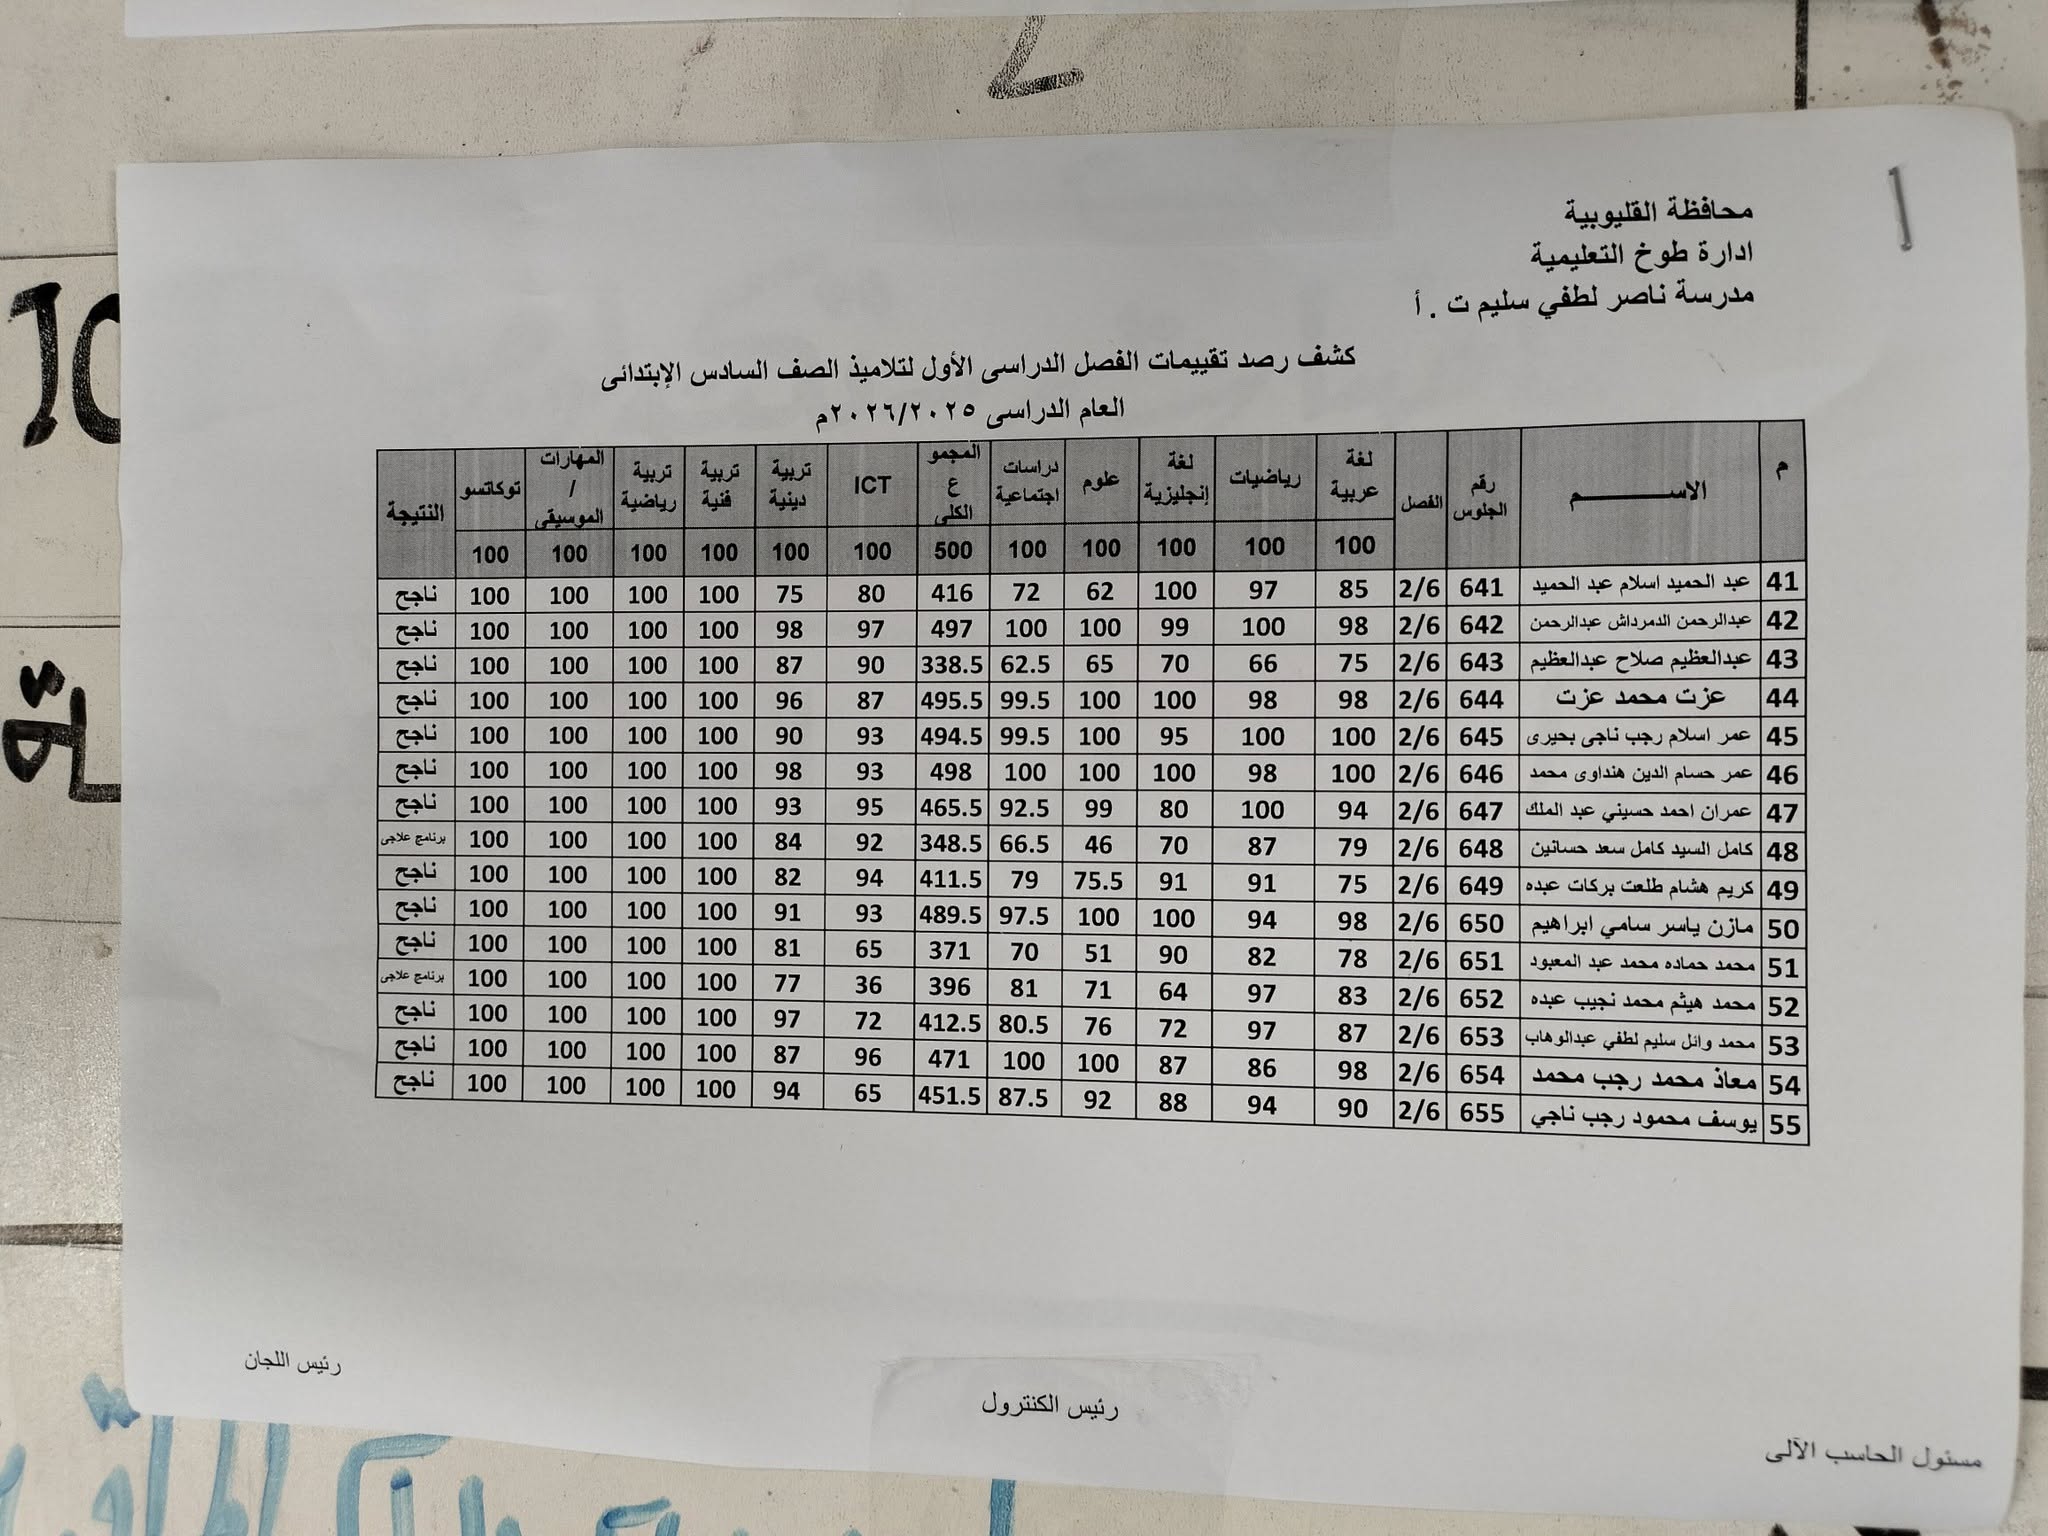 محافظة القليوبية
ادارة طوخ التعليمية
مدرسة ناصر لطفي سليم ت . أ
كشف رصد تقييمات الفصل الدراسى الأول لتلاميذ الصف السادس الإبتدائى
العام الدراسى ٢٠٢٦/٢٠٢٥م
م الاســـــــــم رقم الجلوس الفصل لغة عربية رياضيات لغة إنجليزية علوم دراسات اجتماعية المجموع الكلى ICT تربية دينية تربية فنية تربية رياضية المهارات / الموسيقى توكاتسو النتيجة
100 100 100 100 100 500 100 100 100 100 100 100
41 عبد الحميد اسلام عبد الحميد 641 2/6 85 97 100 62 72 416 80 75 100 100 100 100 ناجح
42 عبدالرحمن الدمرداش عبدالرحمن 642 2/6 98 100 99 100 100 497 97 98 100 100 100 100 ناجح
43 عبدالعظيم صلاح عبدالعظيم 643 2/6 75 66 70 65 62.5 338.5 90 87 100 100 100 100 ناجح
44 عزت محمد عزت 644 2/6 98 98 100 100 99.5 495.5 87 96 100 100 100 100 ناجح
45 عمر اسلام رجب ناجى بحيرى 645 2/6 100 100 95 100 99.5 494.5 93 90 100 100 100 100 ناجح
46 عمر حسام الدين هنداوى محمد 646 2/6 100 98 100 100 100 498 93 98 100 100 100 100 ناجح
47 عمران احمد حسيني عبد الملك 647 2/6 94 100 80 99 92.5 465.5 95 93 100 100 100 100 ناجح
48 كامل السيد كامل سعد حسانين 648 2/6 79 87 70 46 66.5 348.5 92 84 100 100 100 100 برنامج علاجى
49 كريم هشام طلعت بركات عبده 649 2/6 75 91 91 75.5 79 411.5 94 82 100 100 100 100 ناجح
50 مازن ياسر سامي ابراهيم 650 2/6 98 94 100 100 97.5 489.5 93 91 100 100 100 100 ناجح
51 محمد حماده محمد عبد المعبود 651 2/6 78 82 90 51 70 371 65 81 100 100 100 100 ناجح
52 محمد هيثم محمد نجيب عبده 652 2/6 83 97 64 71 81 396 36 77 100 100 100 100 برنامج علاجى
53 محمد وائل سليم لطفي عبدالوهاب 653 2/6 87 97 72 76 80.5 412.5 72 97 100 100 100 100 ناجح
54 معاذ محمد رجب محمد 654 2/6 98 86 87 100 100 471 96 87 100 100 100 100 ناجح
55 يوسف محمود رجب ناجي 655 2/6 90 94 88 92 87.5 451.5 65 94 100 100 100 100 ناجح
رئيس اللجان
رئيس الكنترول
مسئول الحاسب الآلى